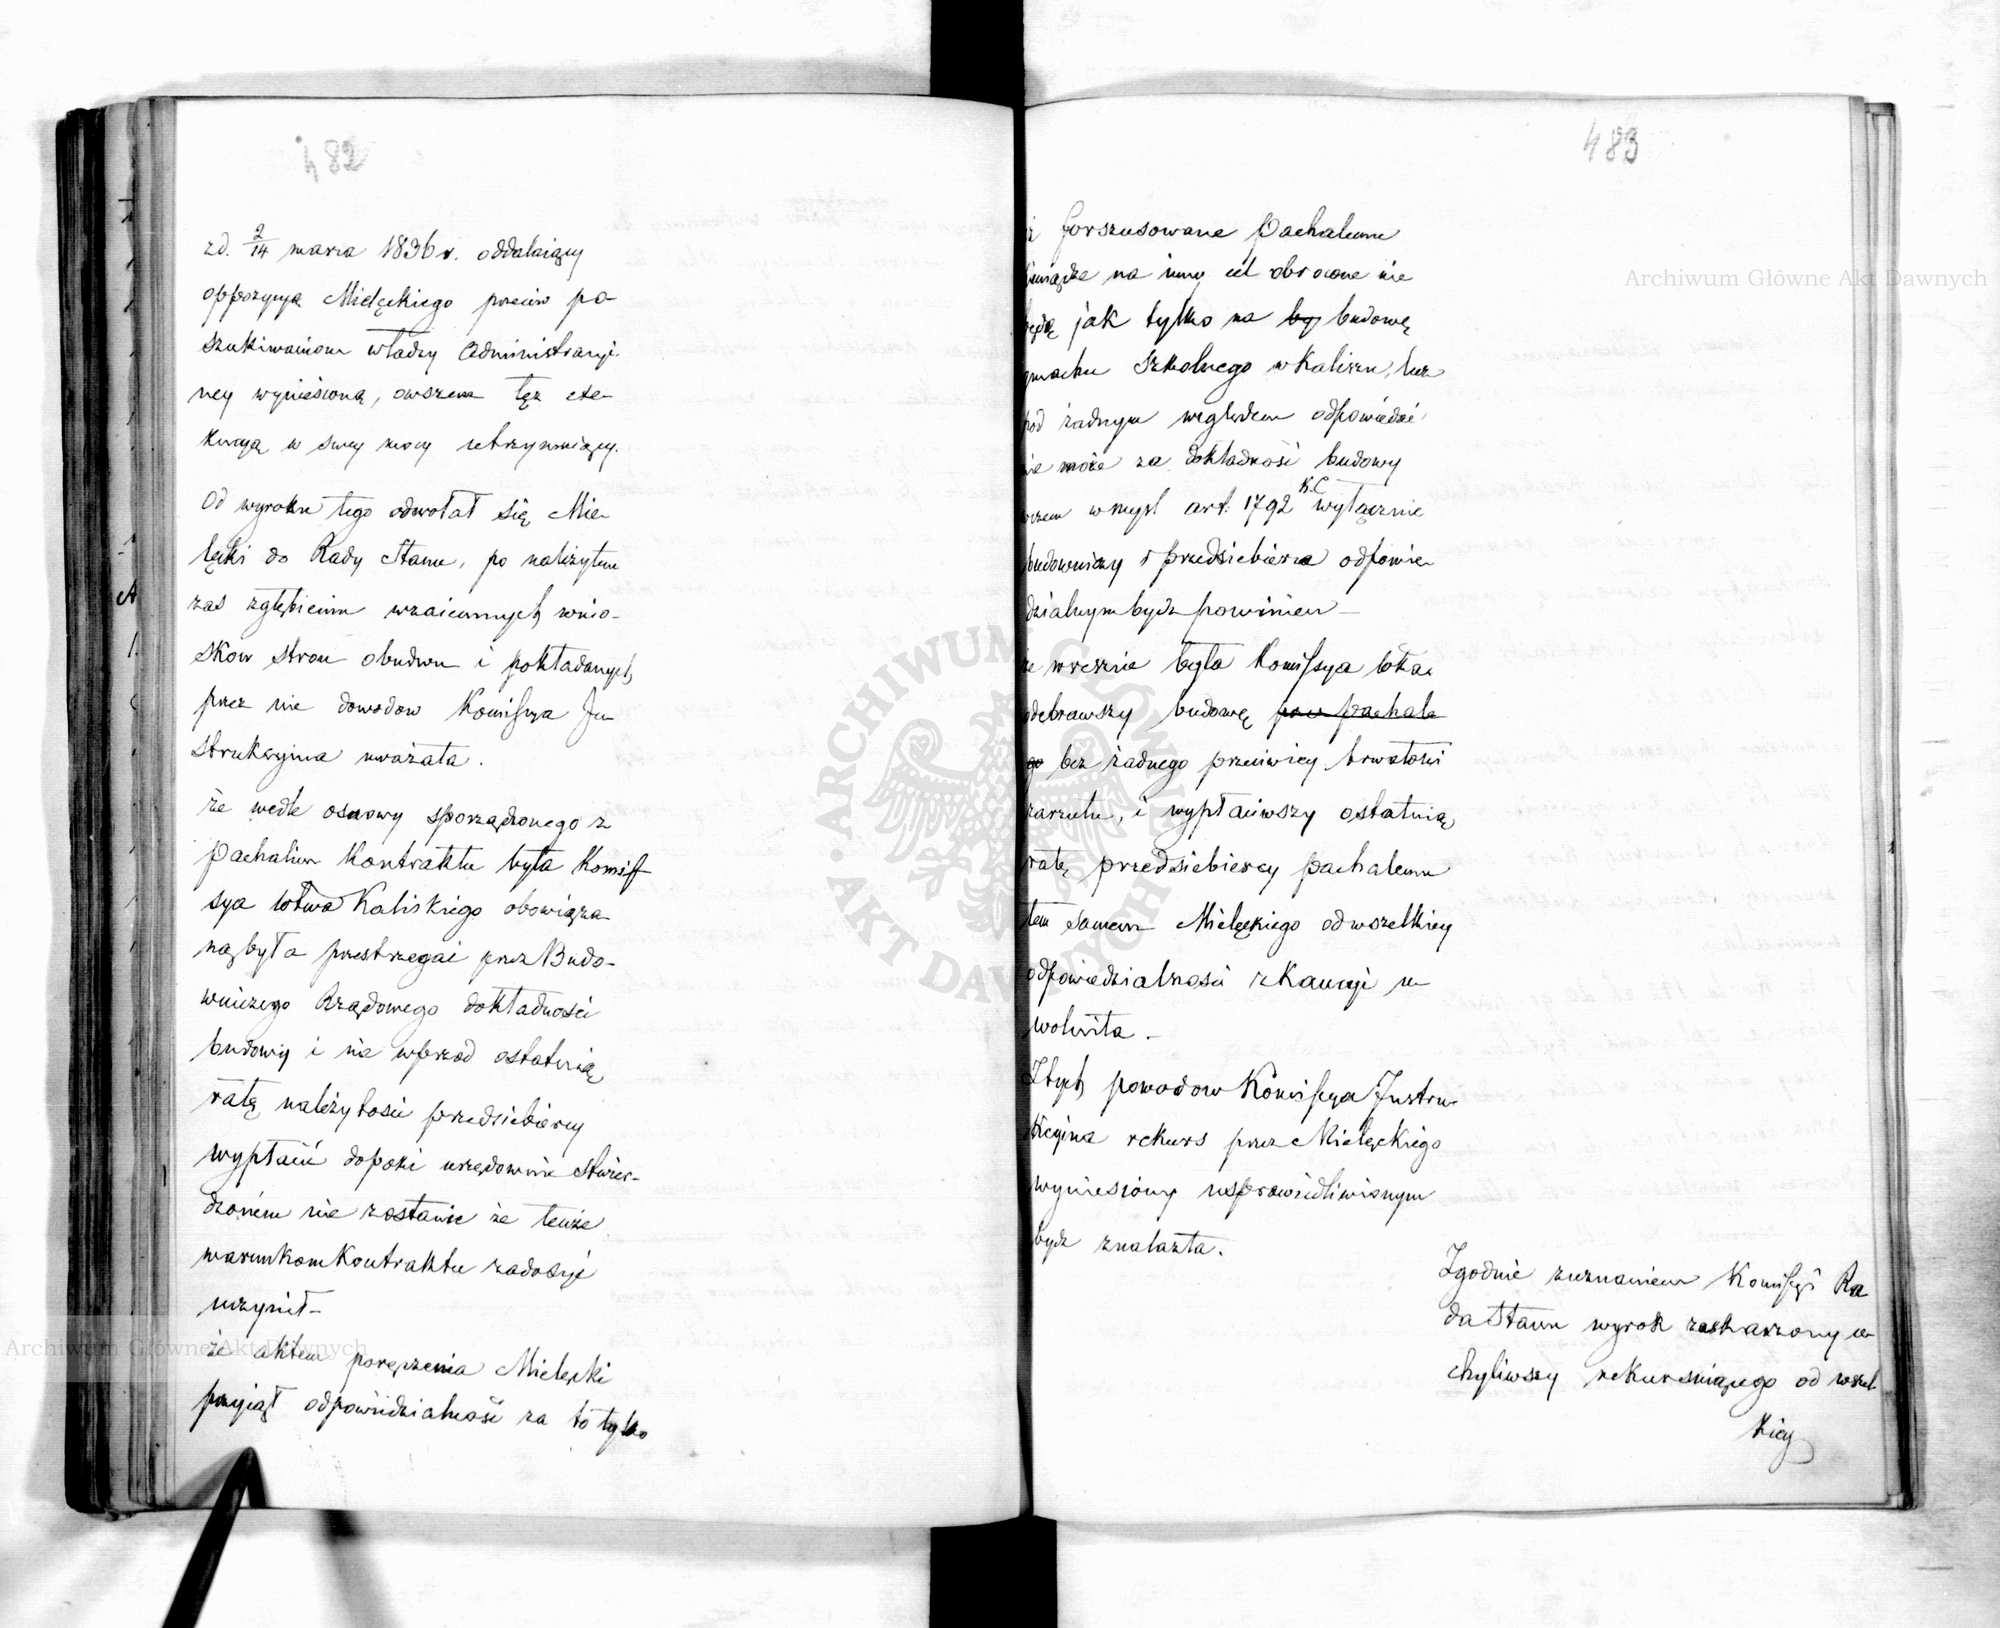 482
zd. 2/14 marca 1836 r. oddalaiący
oppozycyą Mielęckiego przeciw po-
szukiwaniom władzy Administracyi-
ney wyniesioną, owszem tęż exe-
kucyą w swey mocy utrzymuiący.
Od wyroku tego odwołał się Mie-
lęcki do Rady Stanu, po należytem
zas zgłębieniu wzaiemnych wnio-
skow stron obudwu i pokładanych
przez nie dowodow Komissya In-
strukcyina uważała.
że wedle osnowy sporządzonego z
Pachalim Kontraktu była Komis-
sya Wtwa Kaliskiego obowiąza-
ną była przestrzegać przez Budo-
wniczego Rządowego dokładności
budowy i nie wprzod ostatnią
ratę należytości przedsiebiercy
wypłacić dopoki urzędownie stwier-
dzonem nie zostanie że tenże
warunkom Kontraktu zadosyć
uczynił-
że aktem poręczenia Mielęcki
przyiął odpowiedzialność za to tylko
483
iż forszusowane Pachalemu
pieniądze na inny cel obrocone nie
będą jak tylko na by budowę
gmachu Szkolnego w Kaliszu, lecz
pod żadnym względem odpowiedzi-
nie może za dokładność budowy
wczem w mysl art. 1792 K.C wyłącznie
budowniczy i przedsiebierca odpowie-
dzialnym bydz powinien –
że wreszcie była Komissya Wtwa
odebrawszy budowę przez Pachale
go bez żadnego przeciw iey trwałości
zarzutu, i wypłaciwszy ostatnią
ratę przedsiebiercy Pachalemu
tem samem Mielęckiego od wszelkiey
odpowiedzialności z Kaucyi u-
wolniła –
Z tych powodow Komissya Instru-
kcyina rekurs przez Mielęckiego
wyniesiony usprawiedliwionym
bydz znalazła.
Zgodnie z uznaniem Komissyi Ra
da Stanu wyrok zaskarżony u-
chyliwszy rekursuiącego od wszel-
kiey
Archiwum Główne Akt Dawnych
Archiwum Główne Akt Dawnych
ARCHIWUM GŁÓWNE AKT DAWNYCH